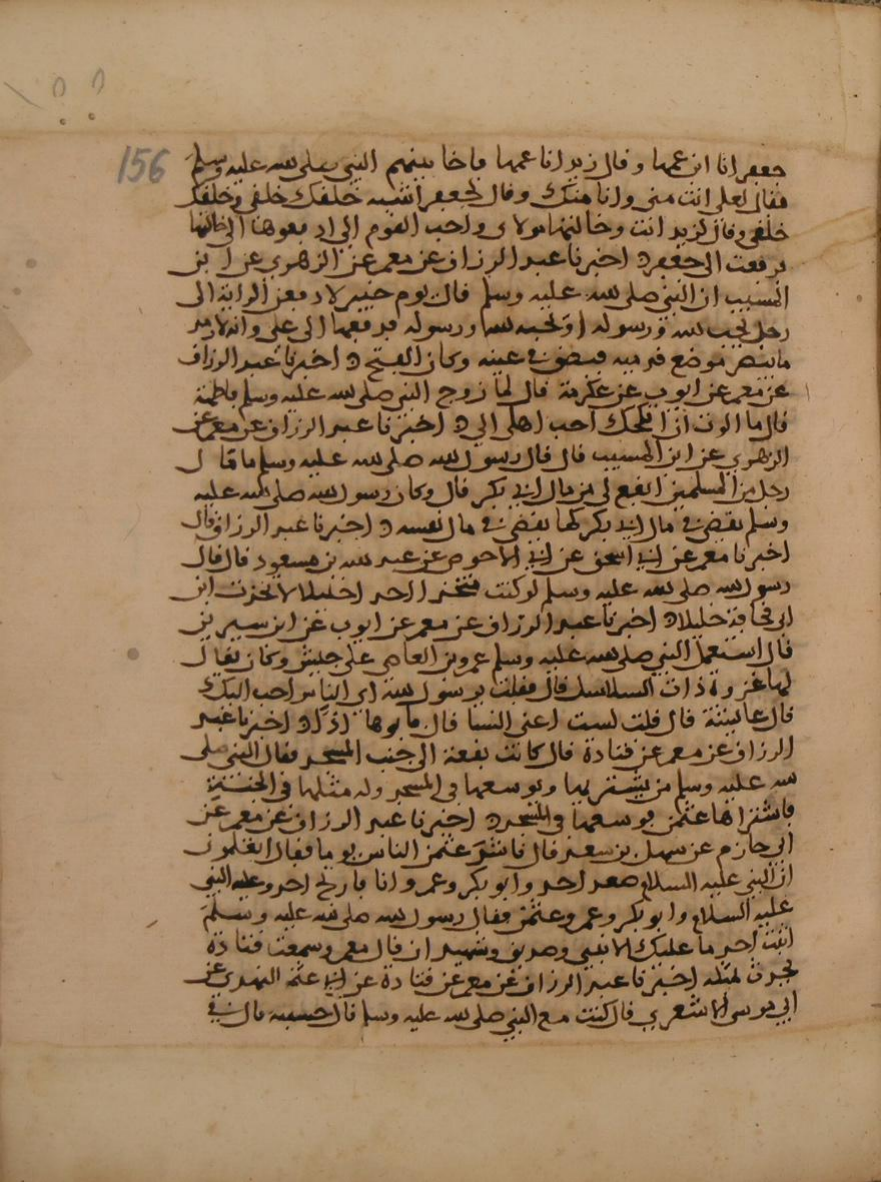 156
جعفر انا ابن عمها وقال زيد انا عمها فاخا بينهم النبي صلى الله عليه وسلم
فقال لعلي انت مني وانا منك وقال لجعفر اشبه خلقك خلقي وخلقك
خلقي وقال لزيد انت وخالتها مولاي واحب القوم الي ادفعوها الى خالتها
فدفعت الى جعفر اخبرنا عبد الرزاق عن معمر عن الزهري عن ابن
المسيب ان النبي صلى الله عليه وسلم قال يوم خيبر لادفعن الراية الى
رجل يحب الله ورسوله او يحبه الله ورسوله فدفعها الى علي وانه لارمد
ما يبصر موضع قدميه فبصق في عينه وكان الفتح اخبرنا عبد الرزاق
عن معمر عن ايوب عن عكرمة قال لما زوج النبي صلى الله عليه وسلم فاطمة
قال ما الوت ان انكحك احب اهلي الي اخبرنا عبد الرزاق عن معمر عن
الزهري عن ابن المسيب قال قال رسول الله صلى الله عليه وسلم ما مال
رجل من المسلمين انفع لي من مال ابي بكر قال وكان رسول الله صلى الله عليه
وسلم يقضي في مال ابي بكر كما يقضي في مال نفسه اخبرنا عبد الرزاق قال
اخبرنا معمر عن ابي اسحق عن ابي الاحوص عن عبد الله بن مسعود قال قال
رسول الله صلى الله عليه وسلم لو كنت متخذا احدا خليلا لاتخذت ابن
ابي قحافة خليلا اخبرنا عبد الرزاق عن معمر عن ايوب عن ابن سيرين
قال استعمل النبي صلى الله عليه وسلم عمرو بن العاص على جيش وكان يقال
لها غزوة ذات السلاسل قال فقلت يرسول الله اي الناس احب اليك
قال عايشة قال قلت لست اعني النسا قال فابوها اذا اخبرنا عبد
الرزاق عن معمر عن قتادة قال كانت بقعة الى جنب المسجد فقال النبي صلى
الله عليه وسلم من يشتريها ويوسعها في المسجد وله مثلها في الجنة
فاشتراها عثمن فوسعها في المسجد اخبرنا عبد الرزاق عن معمر عن
ابي حازم عن سهل بن سعد قال ناشد عثمن الناس يوما فقال اتعلمون
ان النبي عليه السلام صعد احد وابو بكر وعمر وانا فارتج احد وعليه النبي
عليه السلام وابو بكر وعمر وعثمن فقال رسول الله صلى الله عليه وسلم
اثبت احد ما عليك الا نبي وصديق وشهيدان قال معمر وسمعت قتادة
يحدث بمثله اخبرنا عبد الرزاق عن معمر عن قتادة عن ابي عثمن النهدي عن
ابي موسى الاشعري قال كنت مع النبي صلى الله عليه وسلم قال حسبته قال في